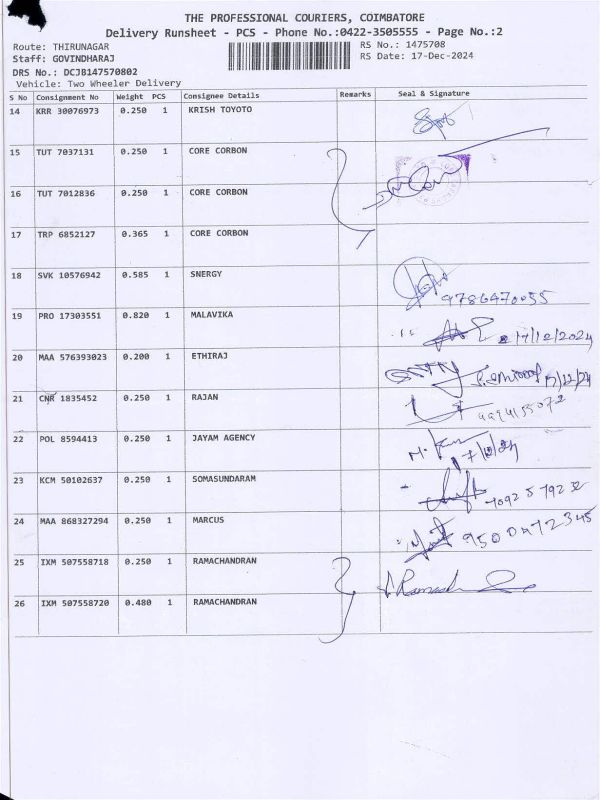 THE PROFESSIONAL COURIERS, COIMBATORE
Delivery Runsheet - PCS - Phone No.:0422-3505555 - Page No.:2
Route: THIRUNAGAR
RS No.: 1475708
Staff: GOVINDHARAJ
RS Date: 17-Dec-2024
DRS No.: DCJ8147570802
Vehicle: Two Wheeler Delivery
S No Consignment No Weight PCS Consignee Details Remarks Seal & Signature
14 KRR 30076973 0.250 1 KRISH TOYOTO
15 TUT 7037131 0.250 1 CORE CORBON
16 TUT 7012836 0.250 1 CORE CORBON
17 TRP 6852127 0.365 1 CORE CORBON
18 SVK 10576942 0.585 1 SNERGY
9786470055
19 PRO 17303551 0.820 1 MALAVIKA
17/12/2024
20 MAA 576393023 0.200 1 ETHIRAJ
17/12/24
21 CNR 1835452 0.250 1 RAJAN
22 POL 8594413 0.250 1 JAYAM AGENCY
23 KCM 50102637 0.250 1 SOMASUNDARAM
24 MAA 868327294 0.250 1 MARCUS
25 IXM 507558718 0.250 1 RAMACHANDRAN
26 IXM 507558720 0.480 1 RAMACHANDRAN